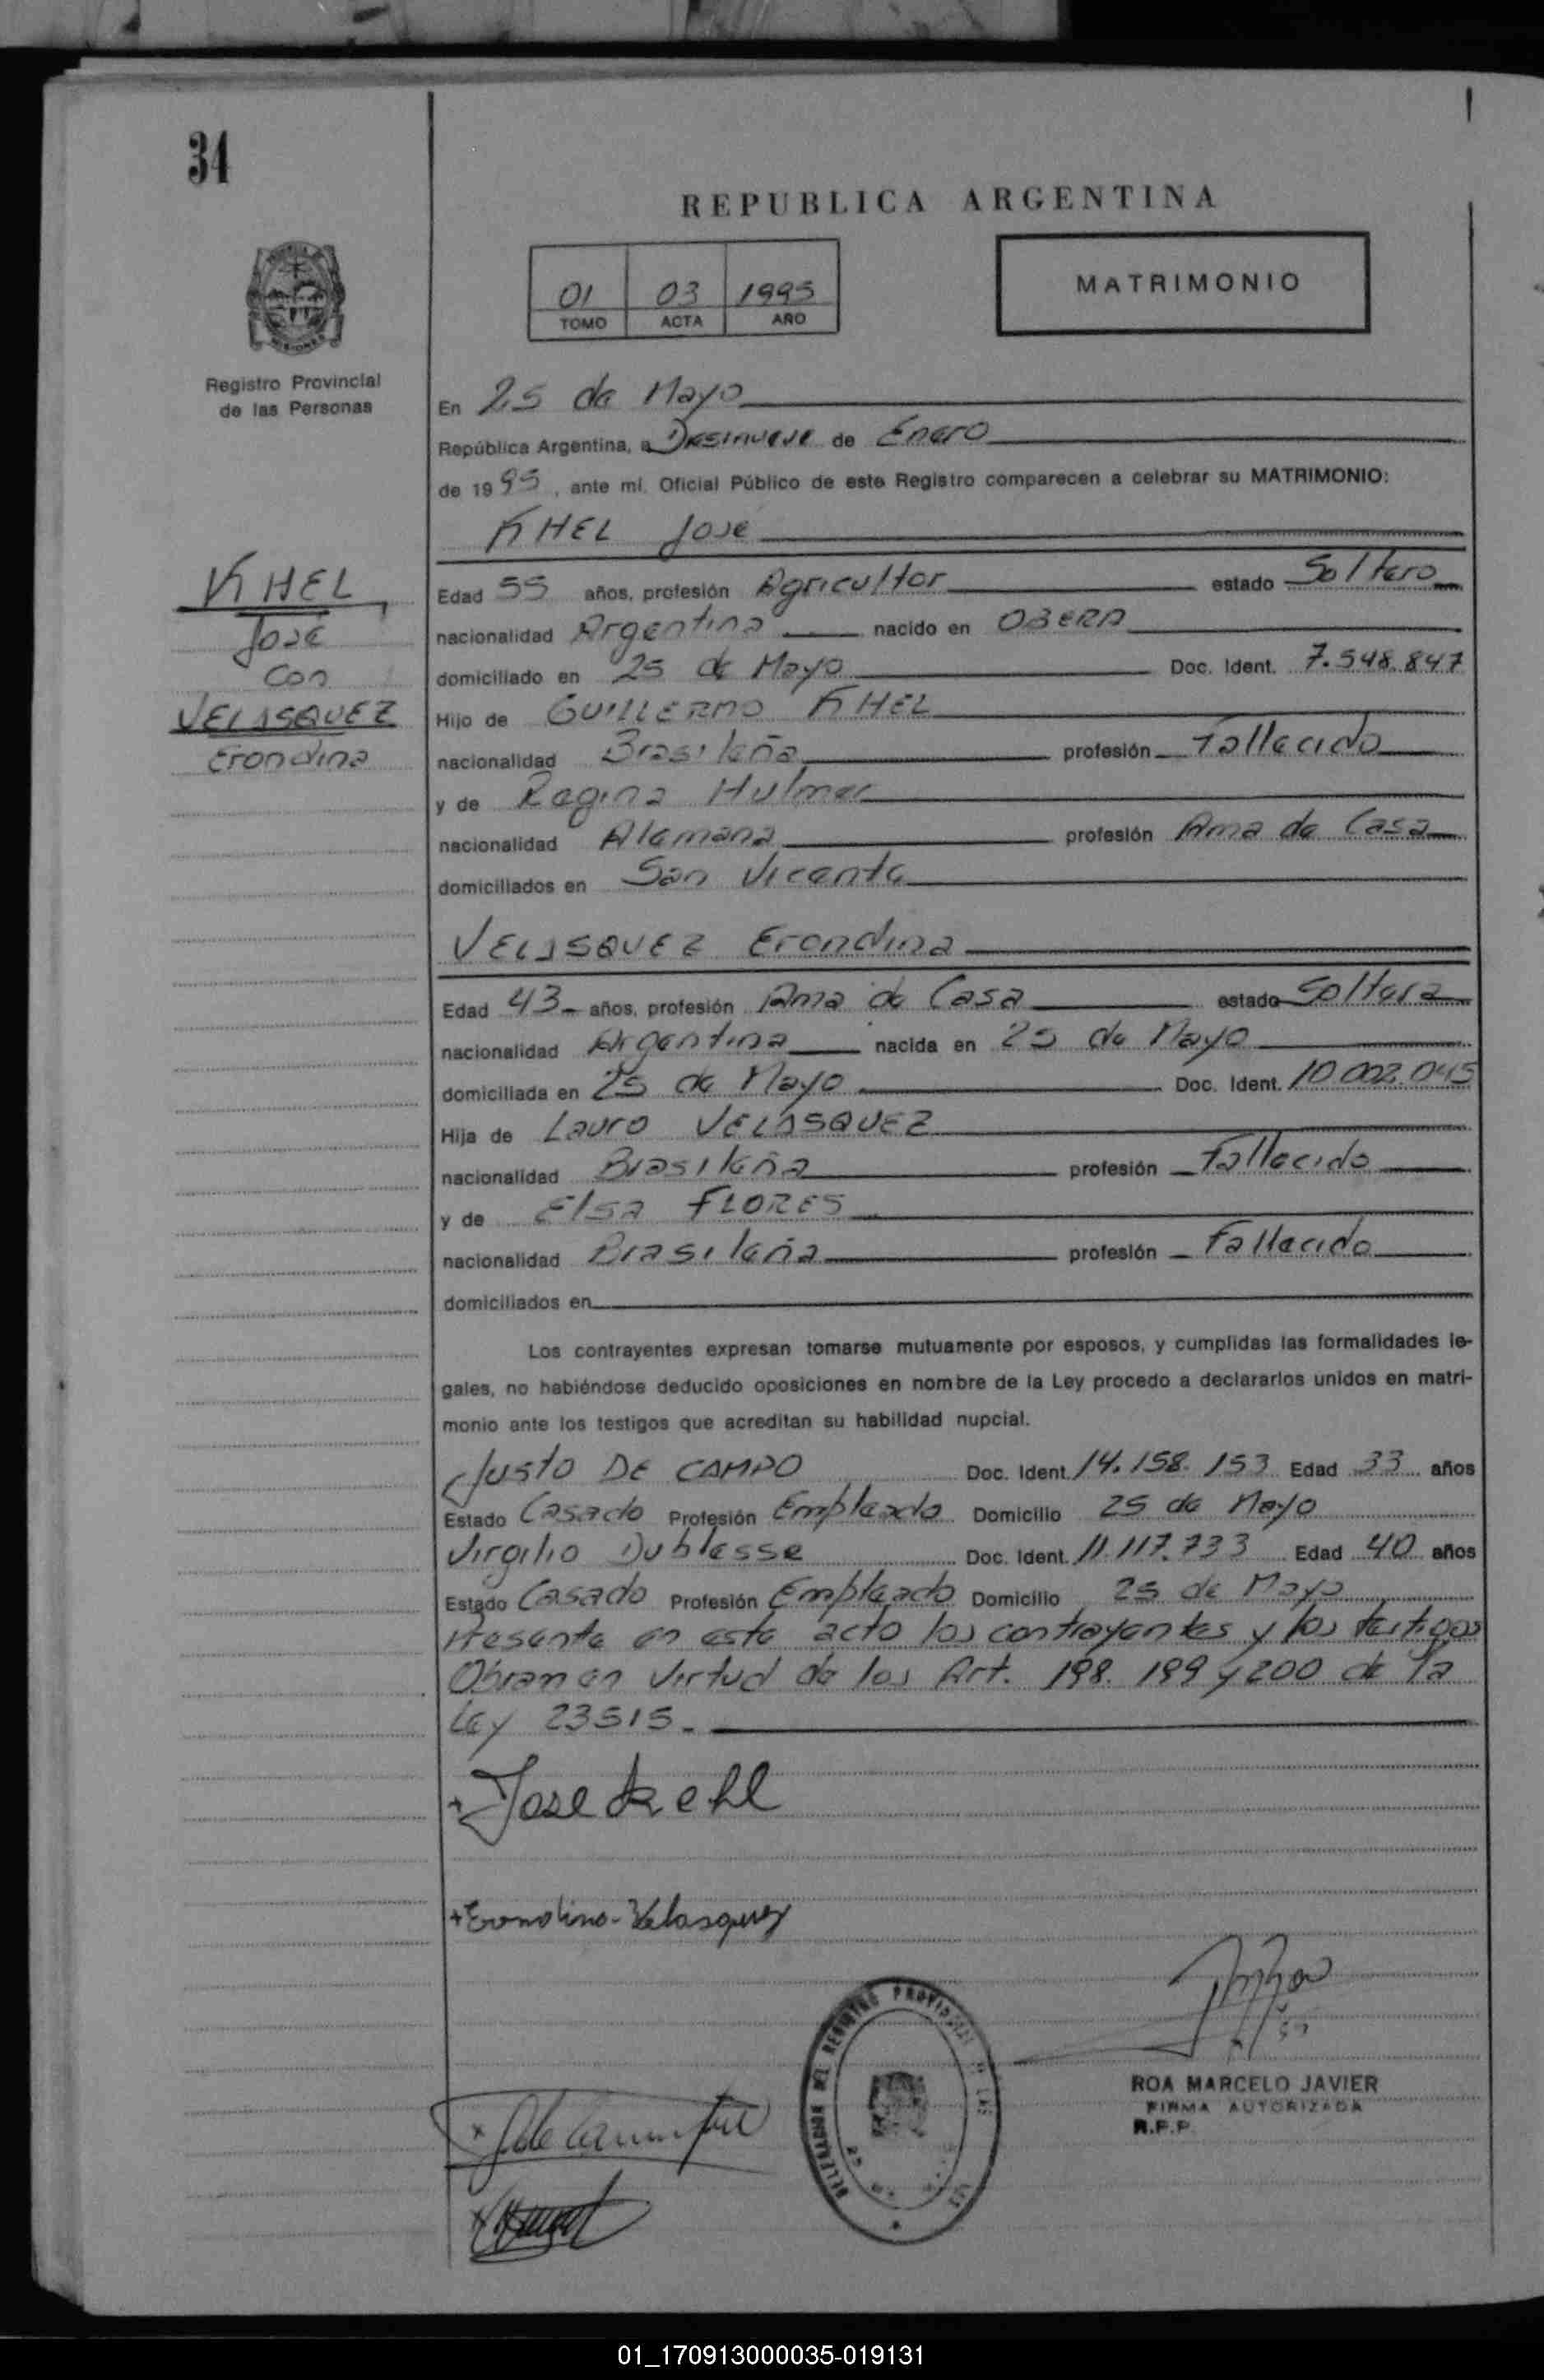 34
REPUBLICA ARGENTINA
01 03 1995
TOMO ACTA AÑO
MATRIMONIO
Registro Provincial
de las Personas
En 25 de Mayo
República Argentina, a Diesinueve de Enero
de 1995, ante mí, Oficial Público de este Registro comparecen a celebrar su MATRIMONIO:
KHEL José
KHEL
José
con
VELASQUEZ
Erondina
Edad 55 años, profesión Agricultor estado Soltero
nacionalidad Argentina nacido en OBERA
domiciliado en 25 de Mayo Doc. Ident. 7.548.847
Hijo de GUILLERMO KHEL
nacionalidad Brasileña profesión Fallecido
y de Regina Hulmer
nacionalidad Alemana profesión Ama de Casa
domiciliados en San Vicente
VELASQUEZ Erondina
Edad 43 años, profesión Ama de Casa estado Soltera
nacionalidad Argentina nacida en 25 de Mayo
domiciliada en 25 de Mayo Doc. Ident. 10.002.045
Hija de Lauro VELASQUEZ
nacionalidad Brasileña profesión Fallecido
y de Elsa FLORES
nacionalidad Brasileña profesión Fallecido
domiciliados en
Los contrayentes expresan tomarse mutuamente por esposos, y cumplidas las formalidades le-
gales, no habiéndose deducido oposiciones en nombre de la Ley procedo a declararlos unidos en matri-
monio ante los testigos que acreditan su habilidad nupcial.
Justo DE CAMPO Doc. Ident. 14.158.153 Edad 33 años
Estado Casado Profesión Empleado Domicilio 25 de Mayo
Virgilio Dublesse Doc. Ident. 11.117.733 Edad 40 años
Estado Casado Profesión Empleado Domicilio 25 de Mayo
Presente en este acto los contrayentes y los testigos
Obran en Virtud de los Art. 198. 199 y 200 de la
Ley 23515.-
+ Jose Kehl
+ Erondina - Velasquez
DELEGACION DEL REGISTRO PROVINCIAL DE LAS
ROA MARCELO JAVIER
FIRMA AUTORIZADA
R.P.P.
01_170913000035-019131